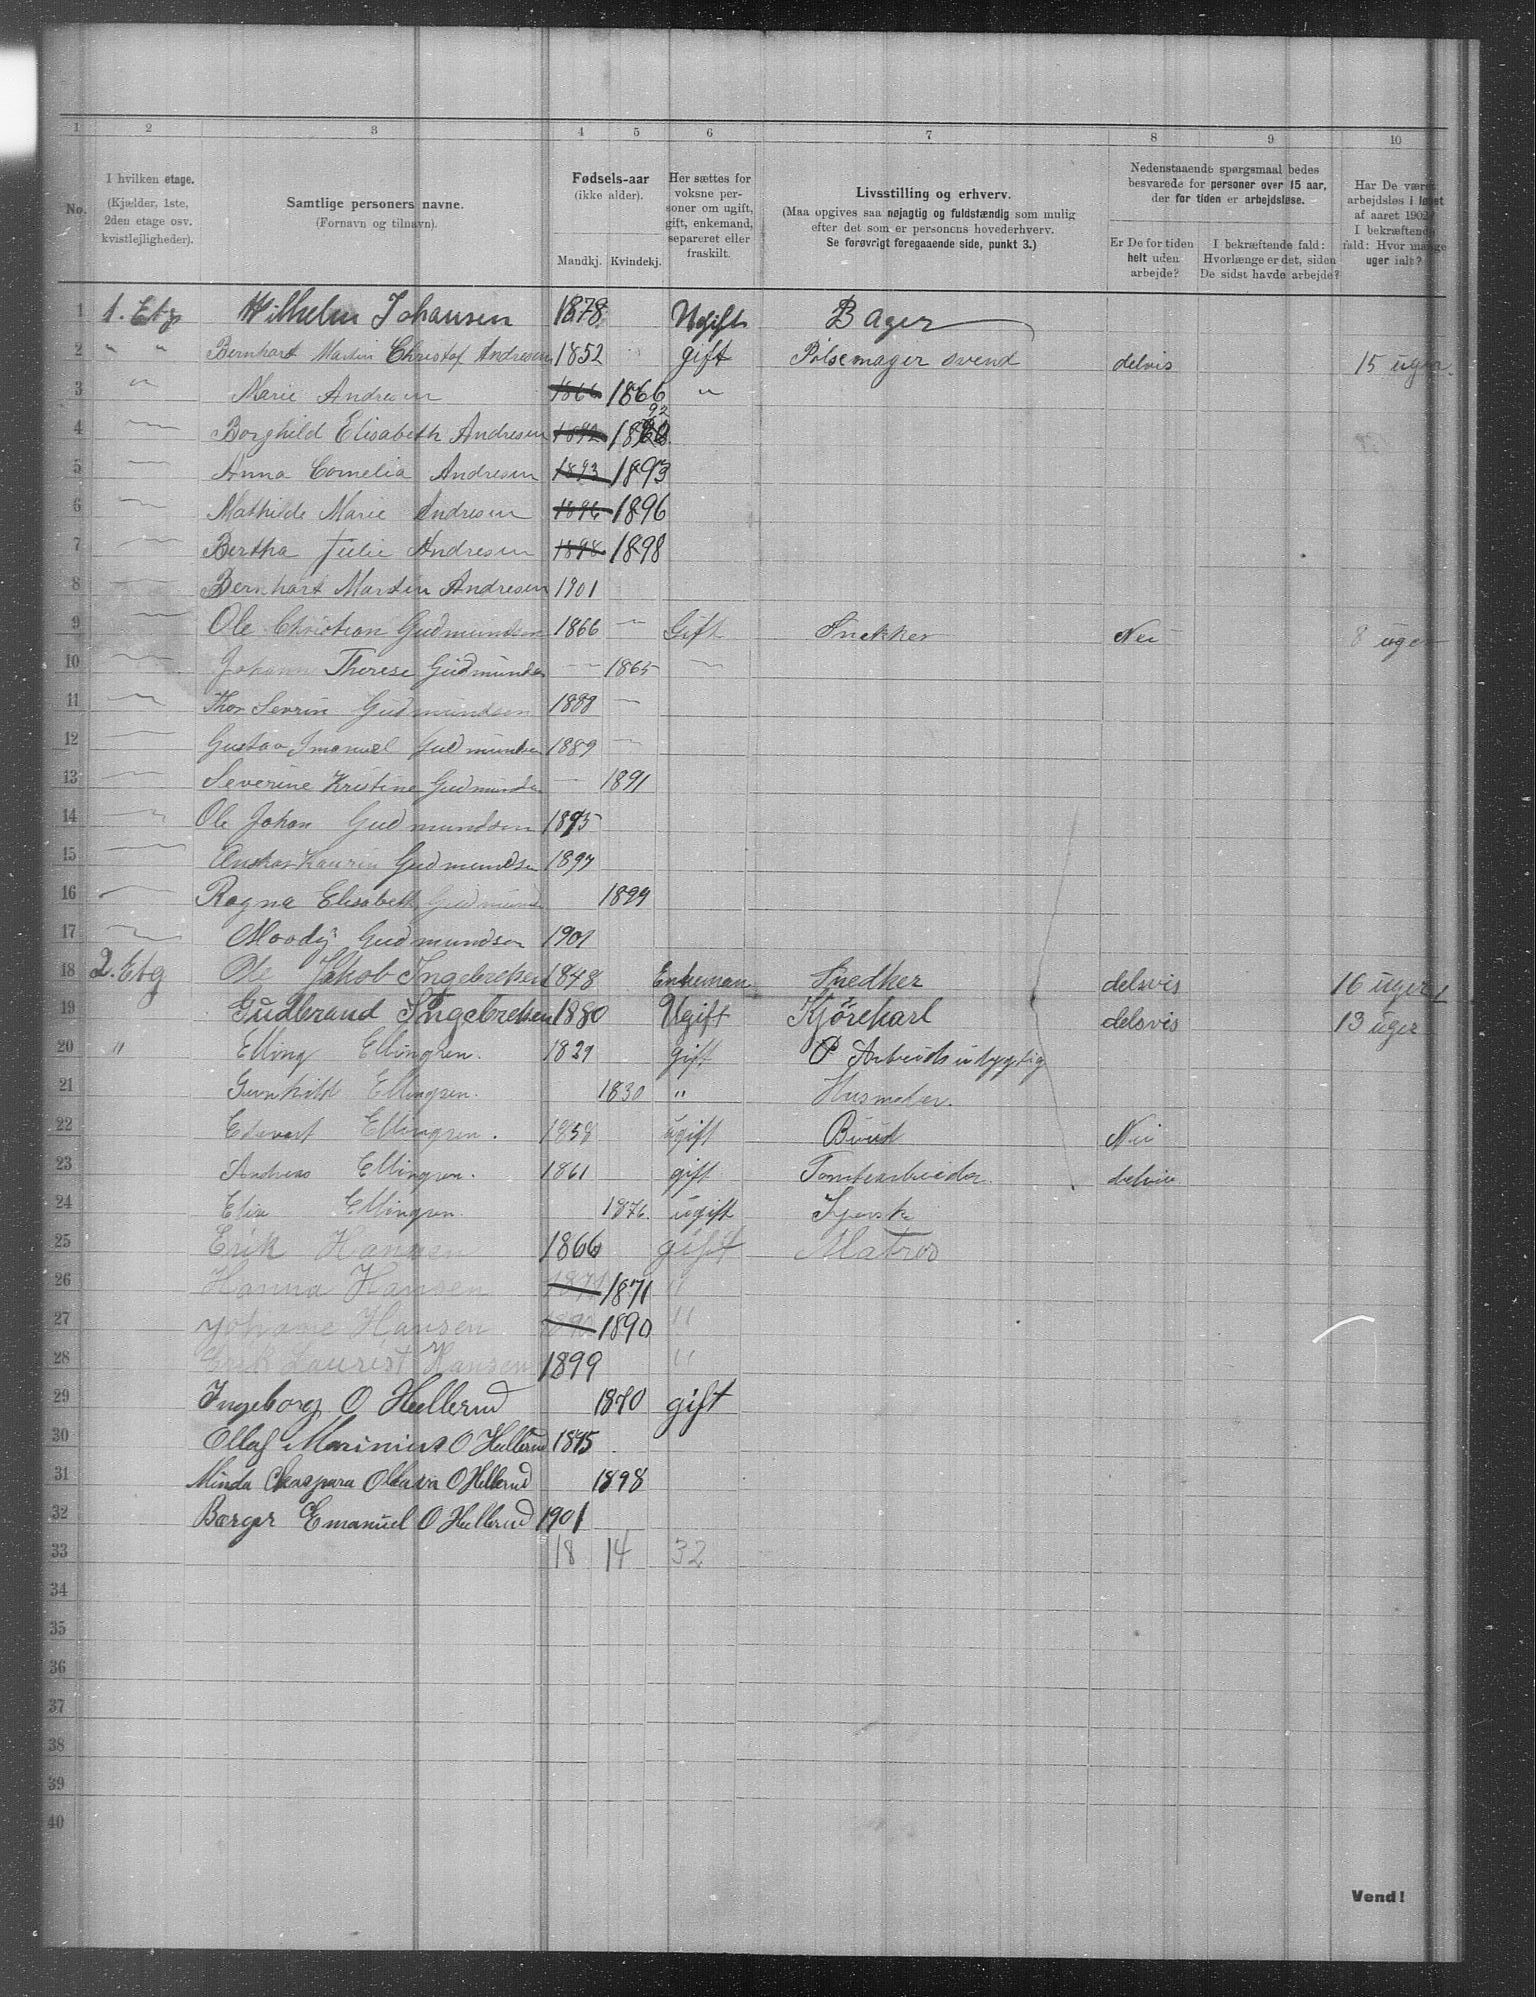 1 2 3 4 5 6 7 8 9 10
No.
I hvilken etage.
(Kjælder, 1ste,
2den etage osv.
kvistlejligheder).
Samtlige personers navne.
(Fornavn og tilnavn).
Fødsels-aar
(ikke alder).
Mandkj. Kvindekj.
Her sættes for
voksne per-
soner om ugift,
gift, enkemand,
separeret eller
fraskilt.
Livsstilling og erhverv.
(Maa opgives saa nøjagtig og fuldstændig som mulig
efter det som er personens hovederhverv.
Se forøvrigt foregaaende side, punkt 3.)
Nedenstaaende spørgsmaal bedes
besvarede for personer over 15 aar,
der for tiden er arbejdsløse.
Er De for tiden
helt uden
arbejde?
I bekræftende fald:
Hvorlænge er det, siden
De sidst havde arbejde?
Har De været
arbejdsløs i løbet
af aaret 1902?
I bekræftende
fald: Hvor mange
uger ialt?
1 1. Etg Wilhelm Johansen 1878 Ugift Bager
2 " " Bernhart Martin Christof Andresen 1852 gift Pølsemager svend delvis 15 uger.
3 " Marie Andresen 1866 1866 "
4 Borghild Elisabeth Andresen 1892 92
5 Anna Cornelia Andresen 1893 1893
6 Mathilde Marie Andresen 1896 1896
7 Bertha Julie Andresen 1898 1898
8 Bernhart Martin Andresen 1901
9 Ole Christian Gudmundsen 1866 Gift Snekker Nei 8 uger
10 Therese Gudmundsen 1865
11 Thor Sevrin Gudmundsen 1888
12 Gustav Imanuel Gudmundsen 1889
13 Severine Kristine Gudmundsen 1891
14 Ole Johan Gudmundsen 1895
15 Gudmundsen 1897
16 Ragna Elisabeth Gudmunds 1899
17 Moody Gudmundsen 1901
18 2. Etg Ole Jakob Ingebretsen 1848 Enkeman Snedker delsvis 16 uger
19 Gudbrand Ingebretsen 1880 Ugift Kjörekarl delsvis 13 uger
20 " Elling Ellingsen. 1829 gift Arbeidsudygtig
21 Gunhild Ellingsen. 1830 " Husmoder.
22 Edvart Ellingsen. 1858 ugift Bud Nei
23 Andreas Ellingsen. 1861 gift Tomtearbeider. delvis
24 Elise Ellingsen. 1876. ugift
25 Erik Hansen 1866 gift Matros
26 Hanna Hansen 1871 1871 "
27 Johanne Hansen 1890 1890 "
28 Erik Laurist Hansen 1899 "
29 Ingeborg O Hellerud 1870 gift
30 Ollaf Marinius O Hellerud 1895
31 Minda Chaspara Oktavia O Hellerud 1898
32 Børger Emanuel O Hellerud 1901
33 18 14 32
34
35
36
37
38
39
40
Vend!